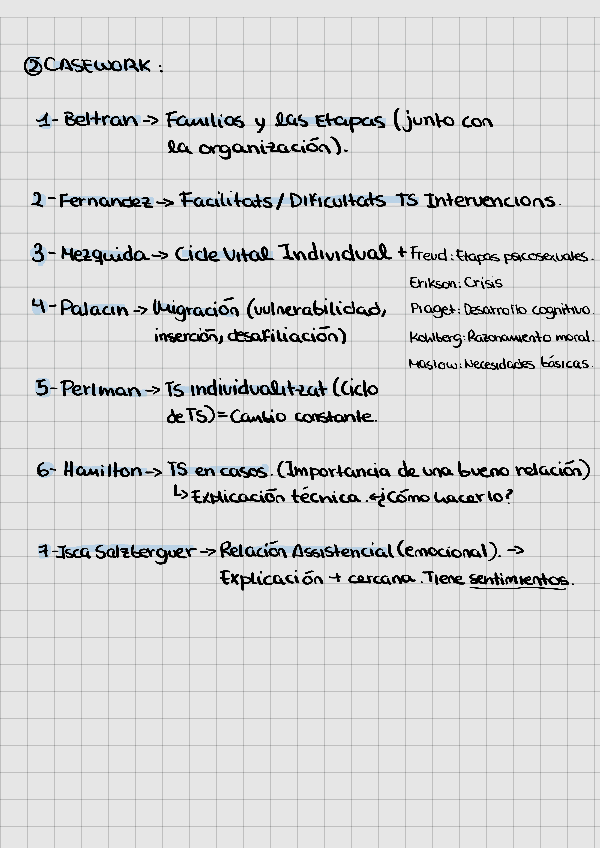 ② CASEWORK :
1- Beltran -> Familias y las Etapas (junto con
la organización).
2- Fernandez -> Facilitats/Dificultats TS Intervencions.
3- Mezquida -> Cicle Vital Individual + Freud: Etapas psicosexuales.
Erikson: Crisis
4- Palacin -> Migración (vulnerabilidad, Piaget: Desarrollo cognitivo.
inserción, desafiliación) Kohlberg: Razonamiento moral.
Maslow: Necesidades básicas.
5- Perlman -> TS individualitzat (Ciclo
de TS) = Cambio constante.
6- Hamilton -> TS en casos. (Importancia de una bueno relación)
↳ Explicación técnica. ¿Cómo hacerlo?
7- Isca Salzberguer -> Relación Assistencial (emocional). ->
Explicación + cercana. Tiene sentimientos.